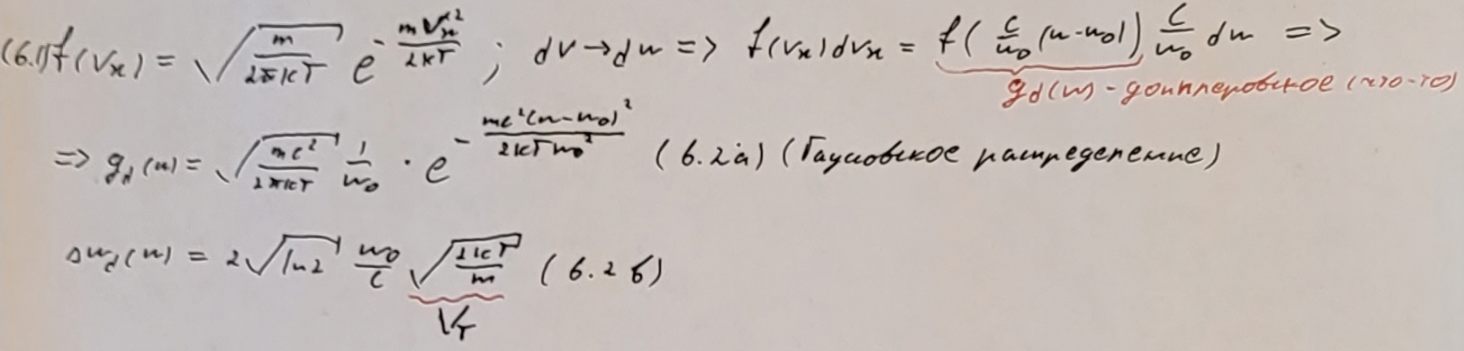 (6.1) f(Vx) = √(m/2πkT) e^(-mVx²/2kT) ; dV→dw => f(Vx)dVx = f(c/w₀ (w-w₀)) c/w₀ dw =>
gd(w) - доплеровское
=> gd(w) = √(mc²/2πkT) 1/w₀ · e^(-mc²(w-w₀)²/2kTw₀²) (6.2a) (Гауссовское распределение)
Δwd(w) = 2√ln2 w₀/c √(2kT/m) (6.2б)
VT